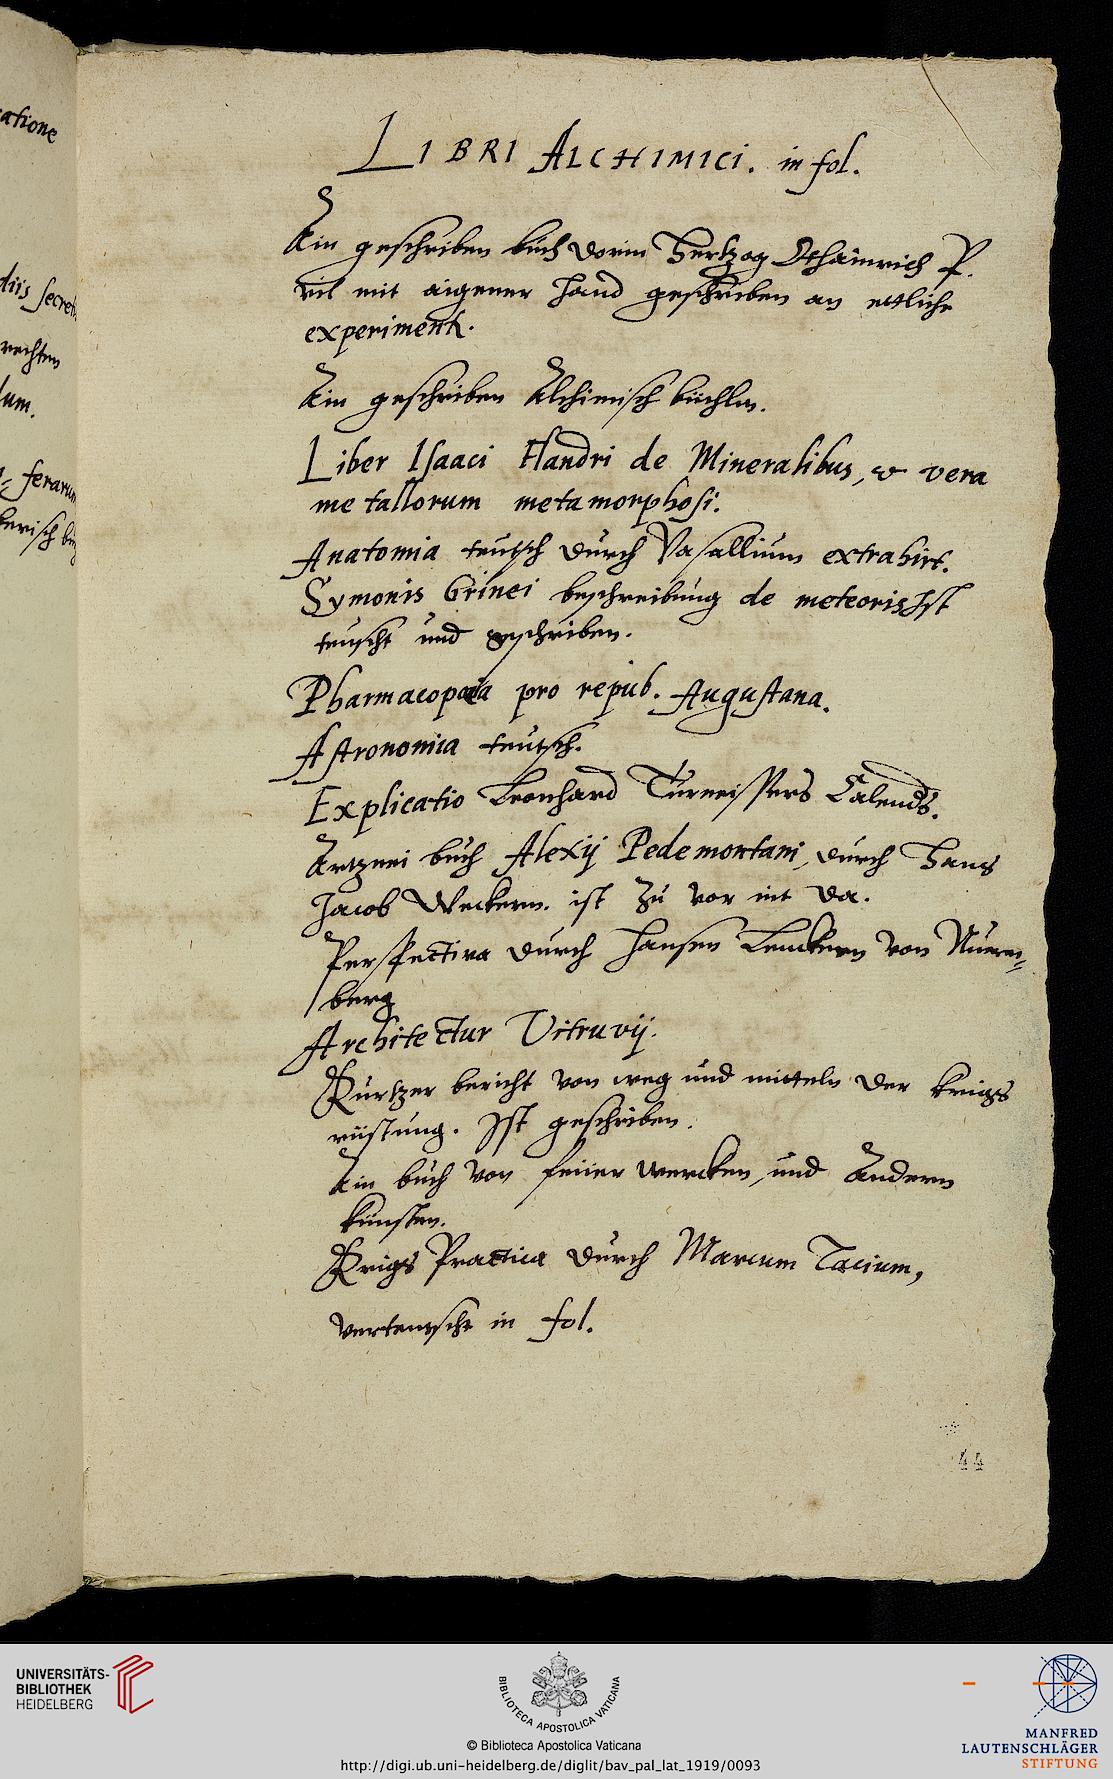 atione
diis secret
rechten
lum.
ferarum
kerisch
LIBRI ALCHIMICI. in fol.
Ain geschriben buch dorin Hertzog Othainrich P.
vil mit aigener hand geschriben an ettliche
experiment.
Ain geschriben Alchimisch büchlin.
Liber Isaaci Flandri de Mineralibus, & vera
metallorum metamorphosi.
Anatomia teutsch durch Vasallium extrahirt.
Symonis Grinei beschreibung de meteoris Ist
teuscht und geschriben.
Pharmacopoeia pro repub. Augustana.
Astronomia teutsch.
Explicatio Leonhard Turneissers Calends.
Artznei buch Alexij Pedemontani, durch Hans
Jacob Weckern. ist zu vor nit da.
Perspectiva durch Hansen Lenckern von Nuerm=
berg
Architectur Vitruvij.
Kurtzer bericht von weg und mitteln der krigs
rüstung. Ist geschriben.
Ain buch von feüer wercken, und Andern
künsten.
Krigs Practica durch Marcum Tacium,
verteutscht in fol.
44
UNIVERSITÄTS-
BIBLIOTHEK
HEIDELBERG
BIBLIOTECA APOSTOLICA VATICANA
© Biblioteca Apostolica Vaticana
http://digi.ub.uni-heidelberg.de/diglit/bav_pal_lat_1919/0093
MANFRED
LAUTENSCHLÄGER
STIFTUNG